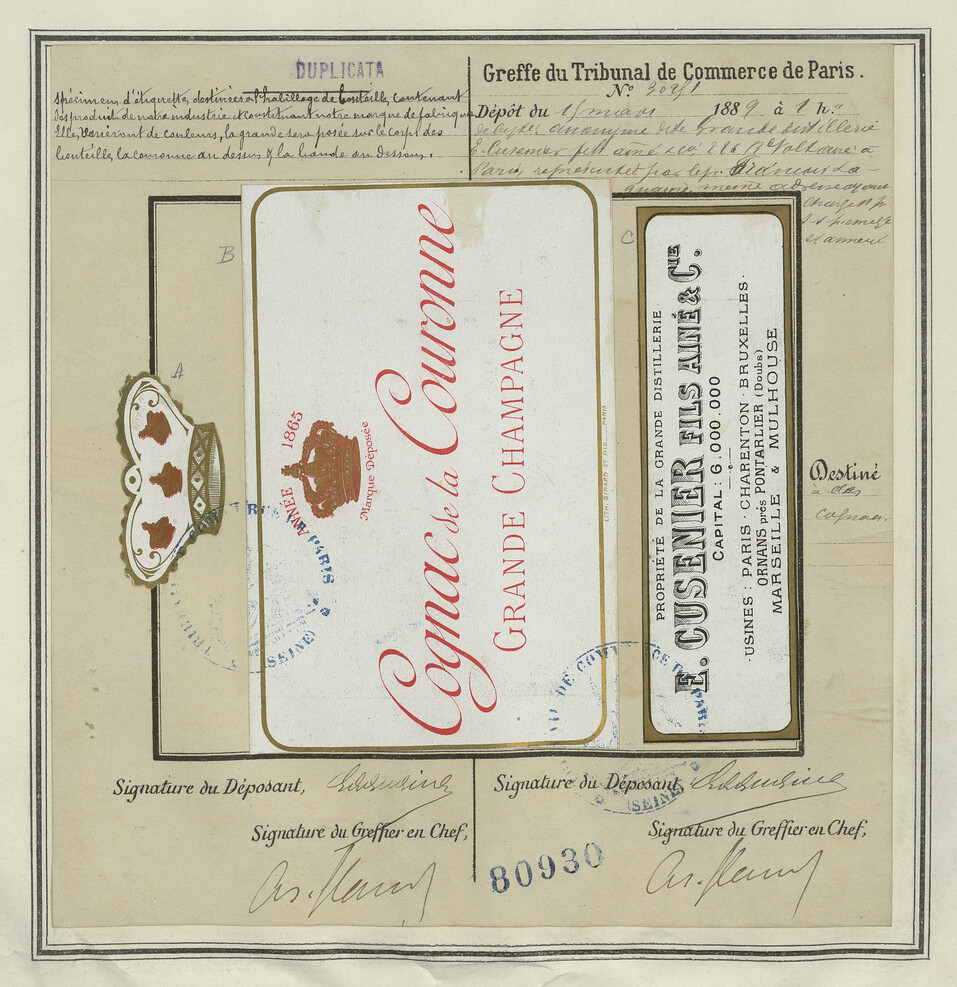 DUPLICATA
Spécimen d'étiquettes, destinées à l'habillage de bouteille, contenant
des produits de notre industrie et constituant notre marque de fabrique
Elles varieront de couleurs, la grande sera posée sur le corps des
bouteilles, la couronne au dessus & la bande au dessous.
Greffe du Tribunal de Commerce de Paris.
Nº
Dépôt du 15 mars 1889 à 1 h.
anonyme dite Grande Distillerie
E. Cusenier fils aîné & Cie, 226 Bd Voltaire à
Paris, représentée par
même adresse
A
B
C
ANNÉE 1865
Marque Déposée
Cognac de la Couronne
GRANDE CHAMPAGNE
LITH. GIRARD ET FILS PARIS
PROPRIÉTÉ DE LA GRANDE DISTILLERIE
E. CUSENIER FILS AINÉ & CIE.
CAPITAL : 6.000.000
·USINES : PARIS · CHARENTON · BRUXELLES·
ORNANS près PONTARLIER (Doubs)
MARSEILLE & MULHOUSE
Destiné
à des
cognac.
COMMERCE DE PARIS
(SEINE)
DE COMMERCE DE PARIS
(SEINE)
Signature du Déposant,
Signature du Greffier en Chef,
Signature du Déposant,
Signature du Greffier en Chef,
80930